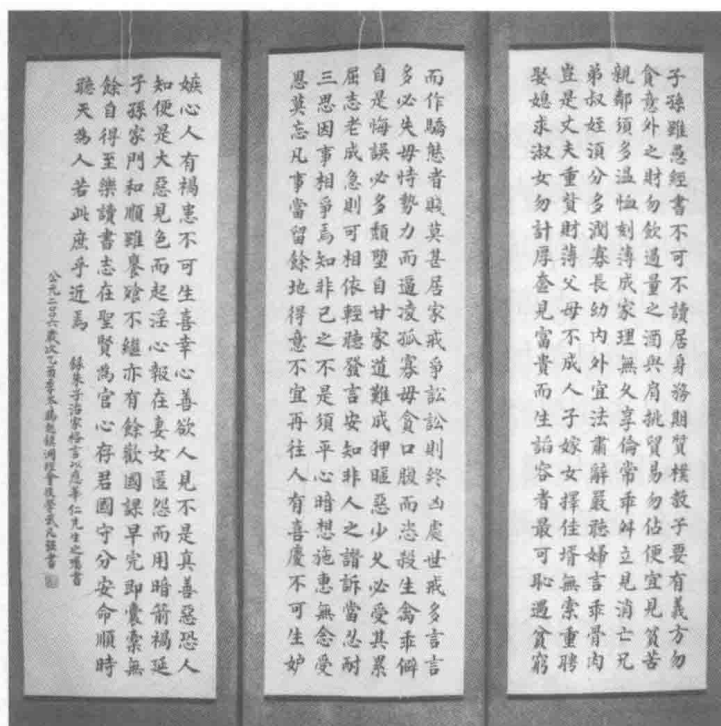 子孫雖愚經書不可不讀居身務期質樸教子要有義方勿
貪意外之財勿飲過量之酒與肩挑貿易勿佔便宜見貧苦
親鄰須多溫恤刻薄成家理無久享倫常乖舛立見消亡兄
弟叔姪須分多潤寡長幼內外宜法肅辭嚴聽婦言乖骨肉
豈是丈夫重貲財薄父母不成人子嫁女擇佳壻無索重聘
娶媳求淑女勿計厚奩見富貴而生諂容者最可恥遇貧窮
而作驕態者賤莫甚居家戒爭訟訟則終凶處世戒多言言
多必失毋恃勢力而逼凌孤寡毋貪口腹而恣殺生禽乖僻
自是悔誤必多頹墮自甘家道難成狎暱惡少久必受其累
屈志老成急則可相依輕聽發言安知非人之譖訴當忍耐
三思因事相爭焉知非己之不是須平心暗想施惠無念受
恩莫忘凡事當留餘地得意不宜再往人有喜慶不可生妒
嫉心人有禍患不可生喜幸心善欲人見不是真善惡恐人
知便是大惡見色而起淫心報在妻女匿怨而用暗箭禍延
子孫家門和順雖饔飧不繼亦有餘歡國課早完即囊橐無
餘自得至樂讀書志在聖賢為官心存君國守分安命順時
聽天為人若此庶乎近焉
錄朱子治家格言以應華仁先生之囑書
公元二〇〇六歲次乙酉季冬後學武凡強書